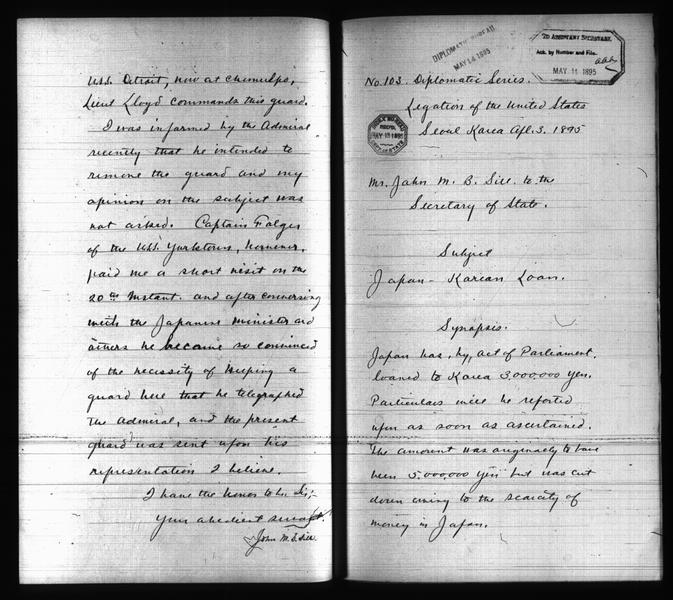 U.S.S. Detroit, now at Chemulpo,
Lieut Lloyd commands this guard.
I was informed by the Admiral
recently that he intended to
remove the guard and my
opinion on the subject was
not asked. Captain Folger
of the U.S.S. Yorktown, however,
paid me a short visit on the
20th instant. and after conversing
with the Japanese Minister and
others he became so convinced
of the necessity of keeping a
guard here that he telegraphed
the Admiral, and the present
guard was sent upon his
representation I believe.
I have the honor to be, Sir,
Your obedient servant.
John M. B. Sill.
DIPLOMATIC BUREAU
MAY 14 1895
TO ASSISTANT SECRETARY,
Ack. by Number and File.
MAY 11 1895
No. 103. Diplomatic Series.
Legation of the United States
Seoul Korea Apl. 3. 1895
DEP'T OF STATE
Mr. John M. B. Sill to the
Secretary of State.
Subject
Japan - Korean Loan.
Synopsis.
Japan has, by, act of Parliament,
loaned to Korea 3,000,000 yen.
Particulars will be reported
upon as soon as ascertained.
The amount was originally to have
been 5,000,000 yen but was cut
down owing to the scarcity of
money in Japan.